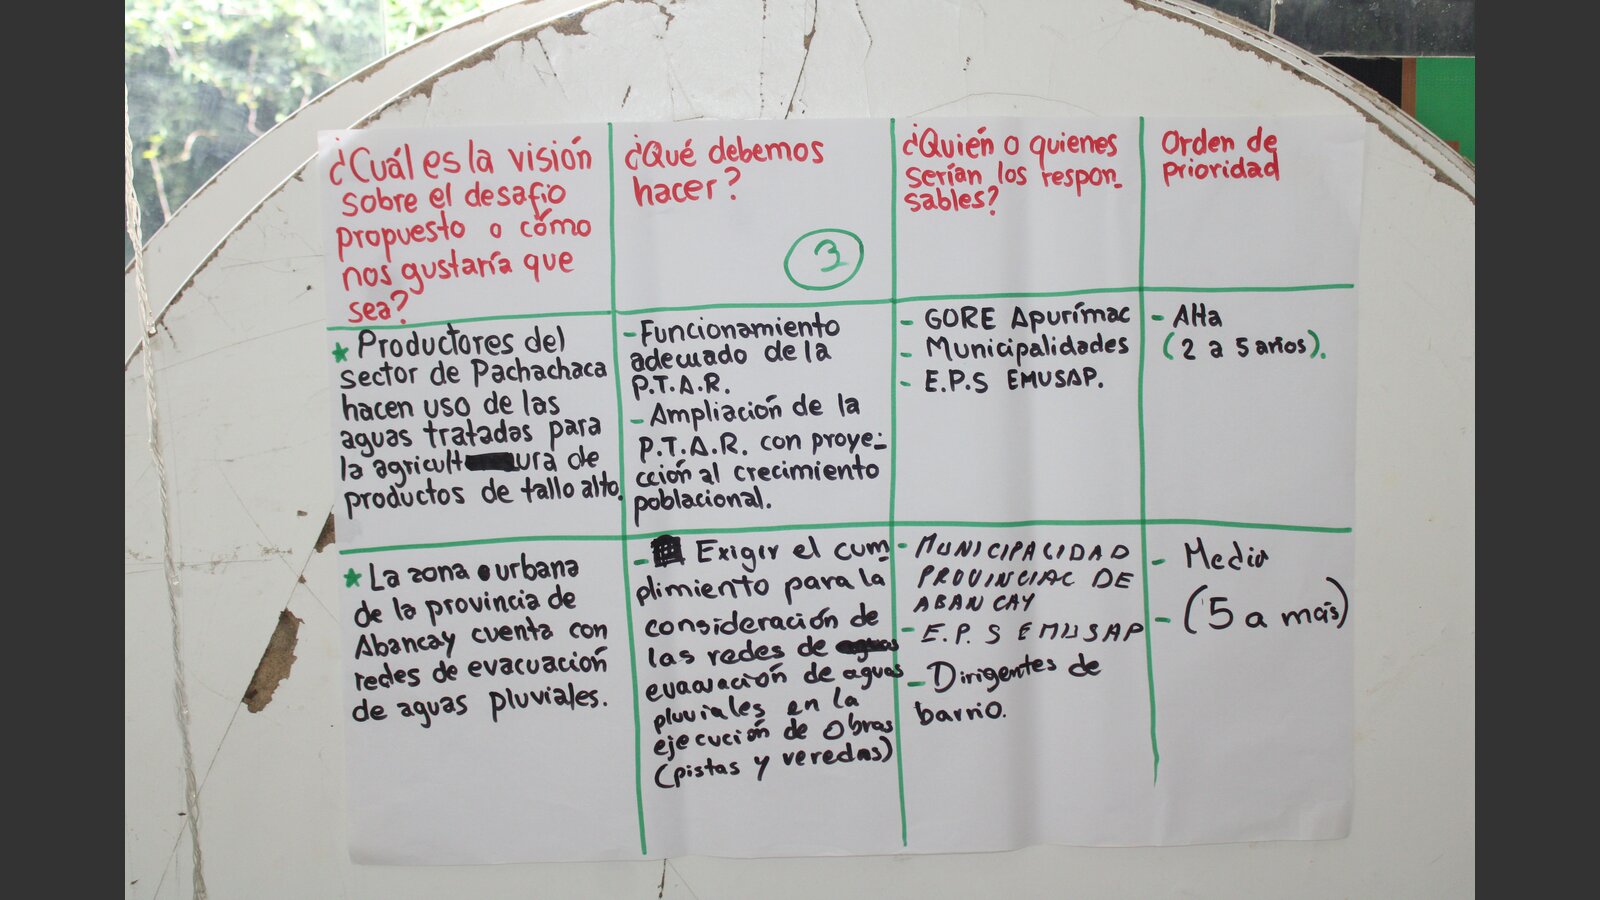 ¿Cuál es la visión
sobre el desafio
propuesto o cómo
nos gustaría que
sea?
¿Qué debemos
hacer?
3
¿Quién o quienes
serían los respon-
sables?
Orden de
prioridad
* Productores del
sector de Pachachaca
hacen uso de las
aguas tratadas para
la agricultura de
productos de tallo alto.
- Funcionamiento
adecuado de la
P.T.A.R.
- Ampliación de la
P.T.A.R. con proye-
cción al crecimiento
poblacional.
- GORE Apurímac
- Municipalidades
- E.P.S EMUSAP.
- Alta
(2 a 5 años).
* La zona urbana
de la provincia de
Abancay cuenta con
redes de evacuación
de aguas pluviales.
- Exigir el cum-
plimiento para la
consideración de
las redes de
evacuación de aguas
pluviales en la
ejecución de Obras
(pistas y veredas)
- MUNICIPALIDAD
PROVINCIAL DE
ABANCAY
- E.P.S EMUSAP
- Dirigentes de
barrio.
- Media
- (5 a más)